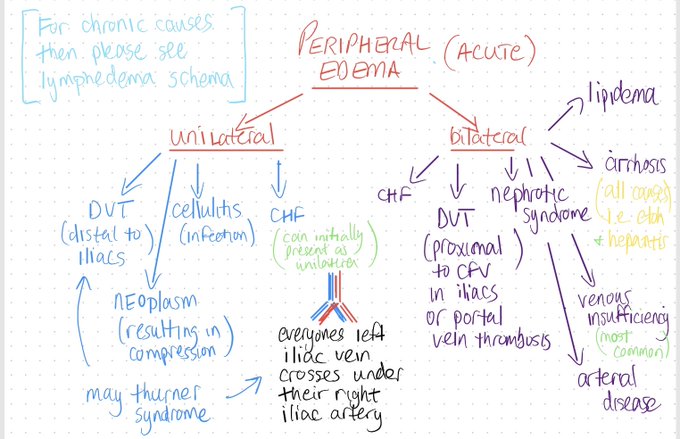 For chronic causes
then please see
lymphedema schema
PERIPHERAL
EDEMA
(ACUTE)
unilateral
bilateral
DVT
(distal to
iliacs
cellulitis
(infection)
CHF
(can initially
present as
unilateral)
NEOplasm
(resulting in
compression)
may thurner
syndrome
everyones left
iliac vein
crosses under
their right
iliac artery
CHF
DVT
(proximal
to CFV
in iliacs
or portal
vein thrombosis
nephrotic
syndrome
lipidema
cirrhosis
(all causes)
i.e. etoh
+ hepatitis
venous
insufficiency
(most
common)
arterial
disease